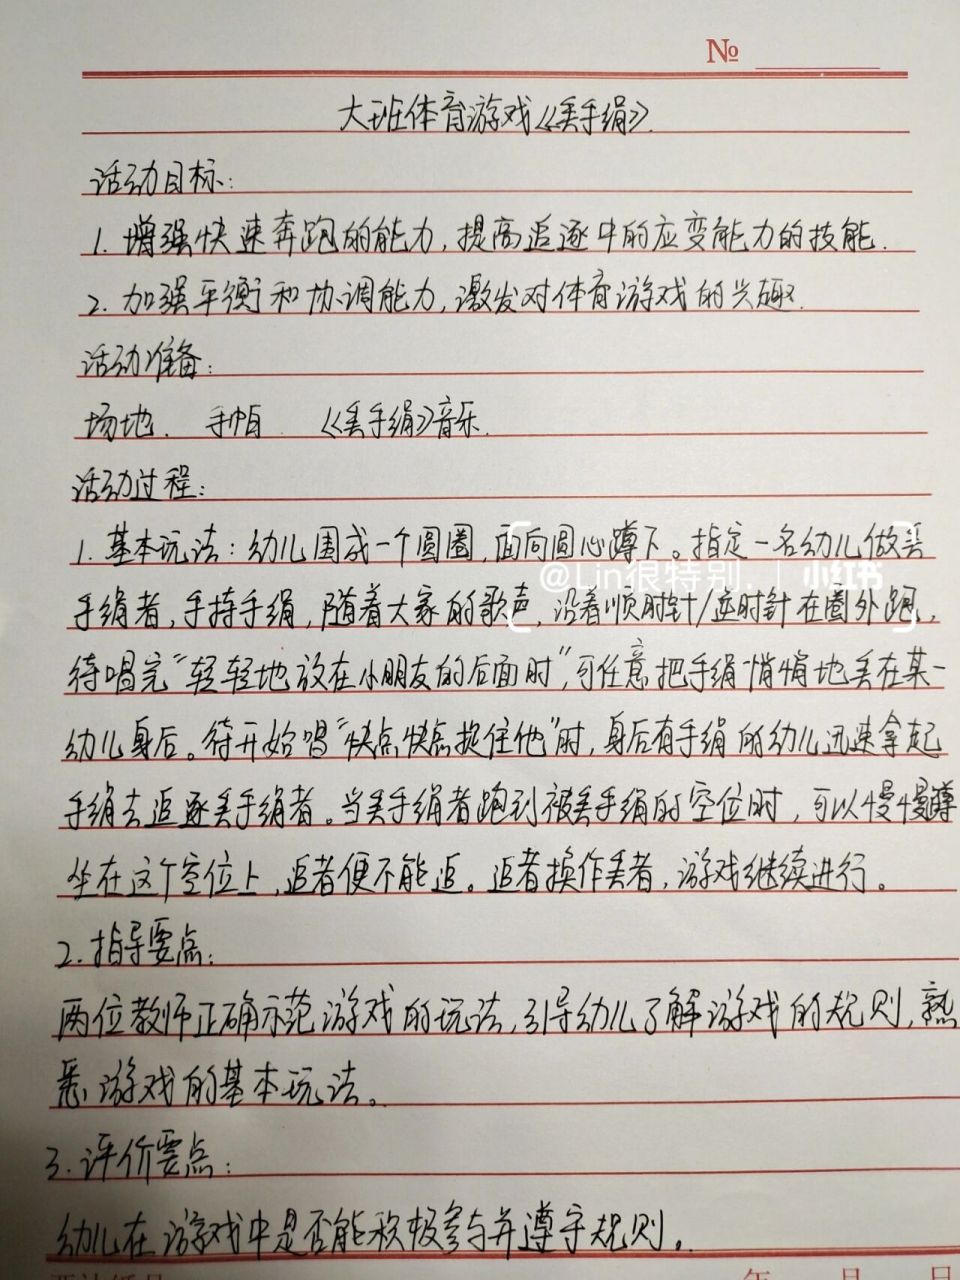 №
大班体育游戏《丢手绢》.
活动目标:
1. 增强快速奔跑的能力,提高追逐中的应变能力的技能.
2. 加强平衡和协调能力,激发对体育游戏的兴趣.
活动准备:
场地. 手帕 《丢手绢》音乐.
活动过程:
1. 基本玩法:幼儿围成一个圆圈,面向圆心蹲下。指定一名幼儿做丢
@Lin很特别. 小红书
手绢者,手持手绢,随着大家的歌声,沿着顺时针/逆时针在圈外跑,
待唱完“轻轻地放在小朋友的后面时”,可任意把手绢悄悄地丢在某一
幼儿身后。待开始唱“快点快点捉住他”时,身后有手绢的幼儿迅速拿起
手绢去追逐丢手绢者。当丢手绢者跑到被丢手绢的空位时,可以慢慢蹲
坐在这个空位上,追者便不能追。追者换作丢者,游戏继续进行。
2. 指导要点:
两位教师正确示范游戏的玩法,引导幼儿了解游戏的规则,熟
悉游戏的基本玩法。
3. 评价要点:
幼儿在游戏中是否能积极参与并遵守规则。
年 月 日